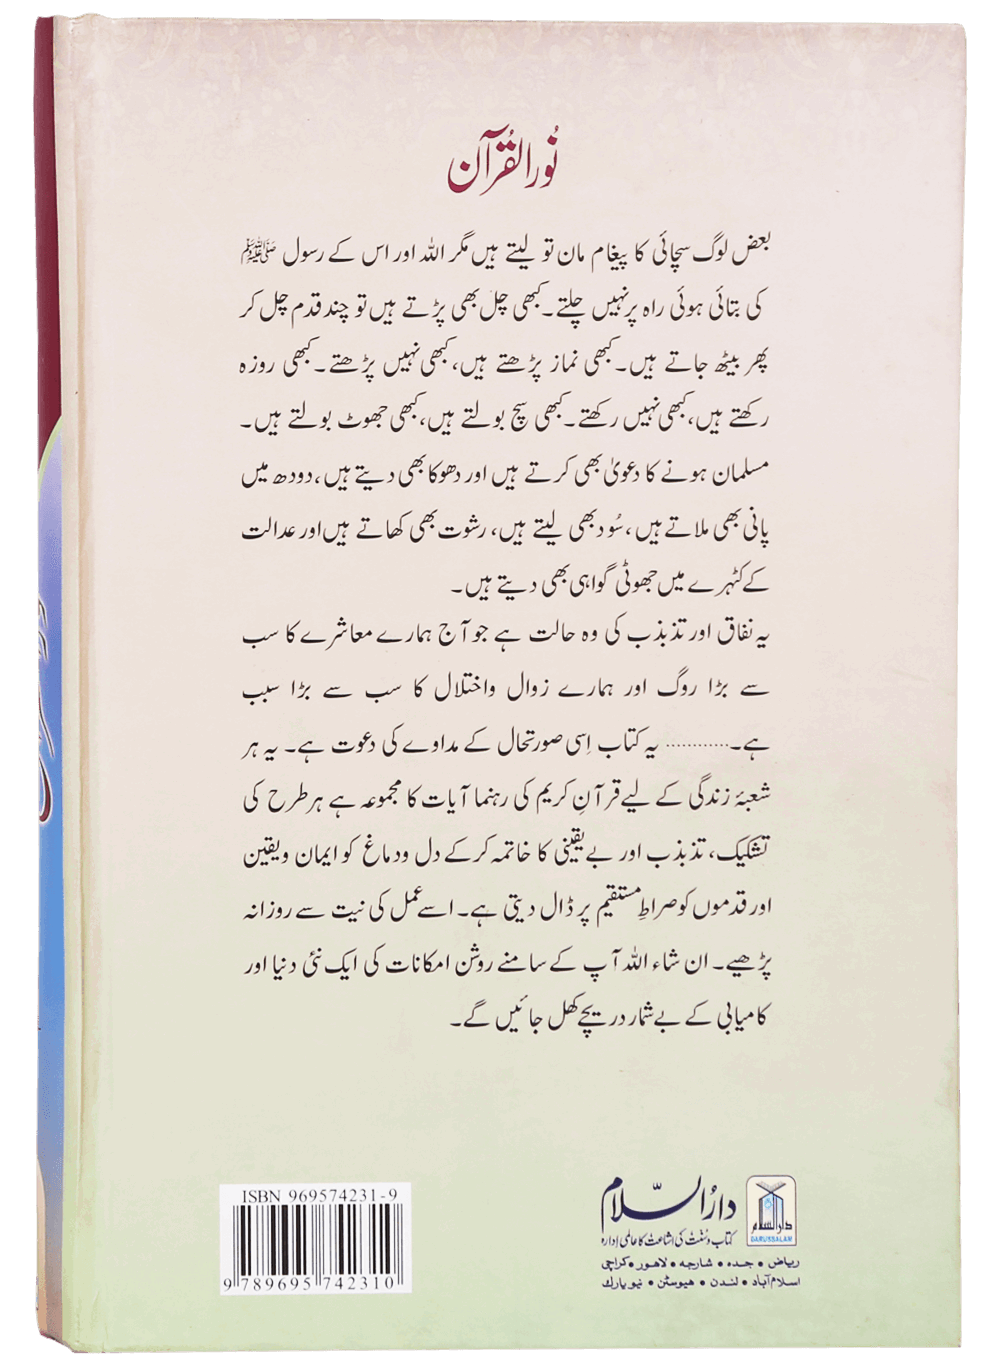 نُورالقُرآن
بعض لوگ سچائی کا پیغام مان تو لیتے ہیں مگر اللہ اور اس کے رسول ﷺ
کی بتائی ہوئی راہ پر نہیں چلتے۔ کبھی چل بھی پڑتے ہیں تو چند قدم چل کر
پھر بیٹھ جاتے ہیں۔ کبھی نماز پڑھتے ہیں، کبھی نہیں پڑھتے۔ کبھی روزہ
رکھتے ہیں، کبھی نہیں رکھتے۔ کبھی سچ بولتے ہیں، کبھی جھوٹ بولتے ہیں۔
مسلمان ہونے کا دعویٰ بھی کرتے ہیں اور دھوکا بھی دیتے ہیں، دودھ میں
پانی بھی ملاتے ہیں، سُود بھی لیتے ہیں، رشوت بھی کھاتے ہیں اور عدالت
کے کٹہرے میں جھوٹی گواہی بھی دیتے ہیں۔
یہ نفاق اور تذبذب کی وہ حالت ہے جو آج ہمارے معاشرے کا سب
سے بڑا روگ اور ہمارے زوال واختلال کا سب سے بڑا سبب
ہے۔............ یہ کتاب اِسی صورتحال کے مداوے کی دعوت ہے۔ یہ ہر
شعبۂ زندگی کے لیے قرآنِ کریم کی رہنما آیات کا مجموعہ ہے ہر طرح کی
تشکیک، تذبذب اور بے یقینی کا خاتمہ کرکے دل ودماغ کو ایمان ویقین
اور قدموں کو صراطِ مستقیم پر ڈال دیتی ہے۔ اسے عمل کی نیت سے روزانہ
پڑھیے۔ ان شاء اللہ آپ کے سامنے روشن امکانات کی ایک نئی دنیا اور
کامیابی کے بے شمار دریچے کھل جائیں گے۔
ISBN 969574231-9
9 789695 742310
دارالسلام
DARUSSALAM
دارُالسّلام
کتاب و سُنّت کی اشاعت کا عالمی ادارہ
ریاض • جدہ • شارجہ • لاہور • کراچی
اسلام آباد • لندن • ھیوسٹن • نیو یارک